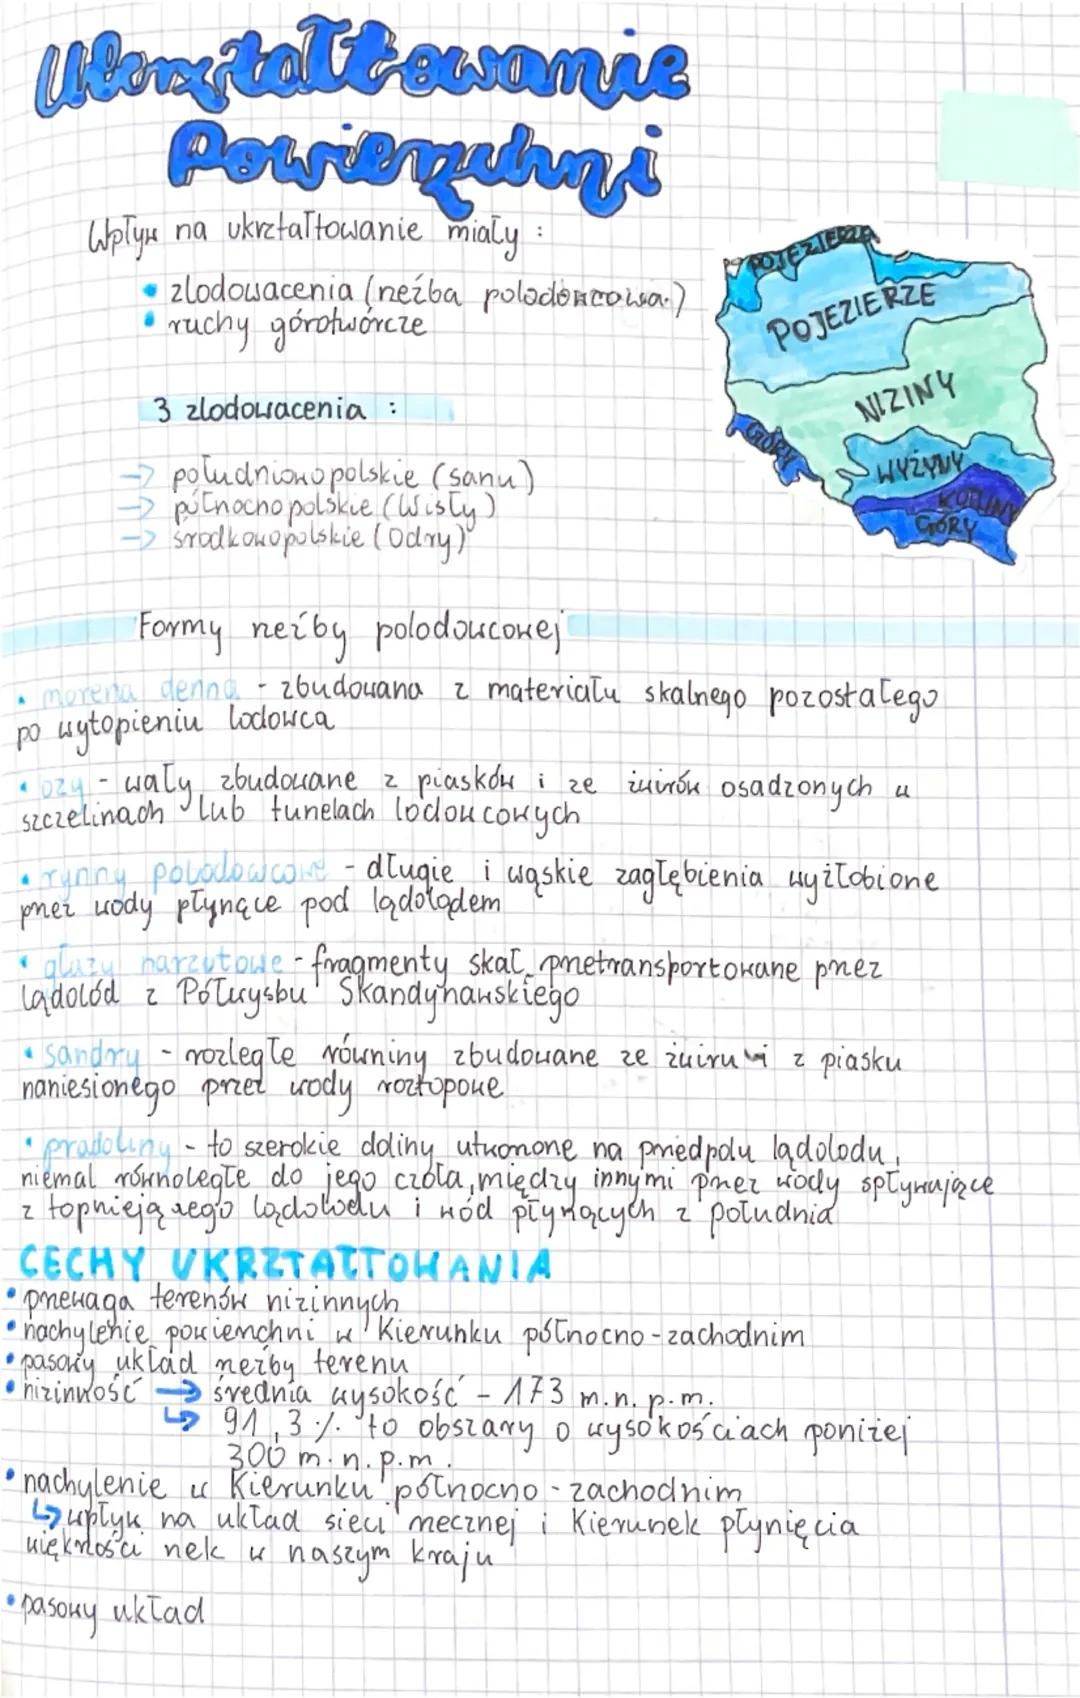 Ukształtowanie
Powierzchni
Wpływ na ukształtowanie miały :
• zlodowacenia (rzeźba polodowcowa.)
• ruchy górotwórcze
POJEZIERZE
NIZINY
GÓRY
WYŻYNY
KOTLINY
GÓRY
3 zlodowacenia :
→ południowopolskie (sanu)
→ północnopolskie (Wisły)
→ środkowopolskie (Odry)
Formy rzeźby polodowcowej
• morena denna - zbudowana z materiału skalnego pozostałego
po wytopieniu lodowca
• ozy - wały zbudowane z piasków i ze żwirów osadzonych w
szczelinach lub tunelach lodowcowych
• rynny polodowcowe - długie i wąskie zagłębienia wyżłobione
przez wody płynące pod lądolądem
• głazy narzutowe - fragmenty skał przetransportowane przez
lądolód z Półwysbu Skandynawskiego
• sandry - rozległe równiny zbudowane ze żwiru i z piasku
naniesionego przez wody roztopowe
• pradoliny - to szerokie doliny utworzone na przedpolu lądolodu,
niemal równoległe do jego czoła, między innymi przez wody spływające
z topniejącego lądolodu i wód płynących z południa
CECHY UKRZTAŁTOWANIA
• przewaga terenów nizinnych
• nachylenie powierzchni w Kierunku północno-zachodnim
• pasowy układ rzeźby terenu
• nizinność → średnia wysokość - 173 m.n.p.m.
↳ 91,3% to obszary o wysokościach poniżej
300 m.n.p.m.
• nachylenie w Kierunku północno-zachodnim
↳ wpływ na układ sieci rzecznej i Kierunek płynięcia
większości rzek w naszym kraju
• pasowy układ